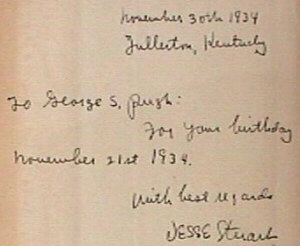 November 30th 1934
Fullerton, Kentucky
To George S. Pugh:
For your birthday
November 21st 1934.
With best regards
JESSE Stuart